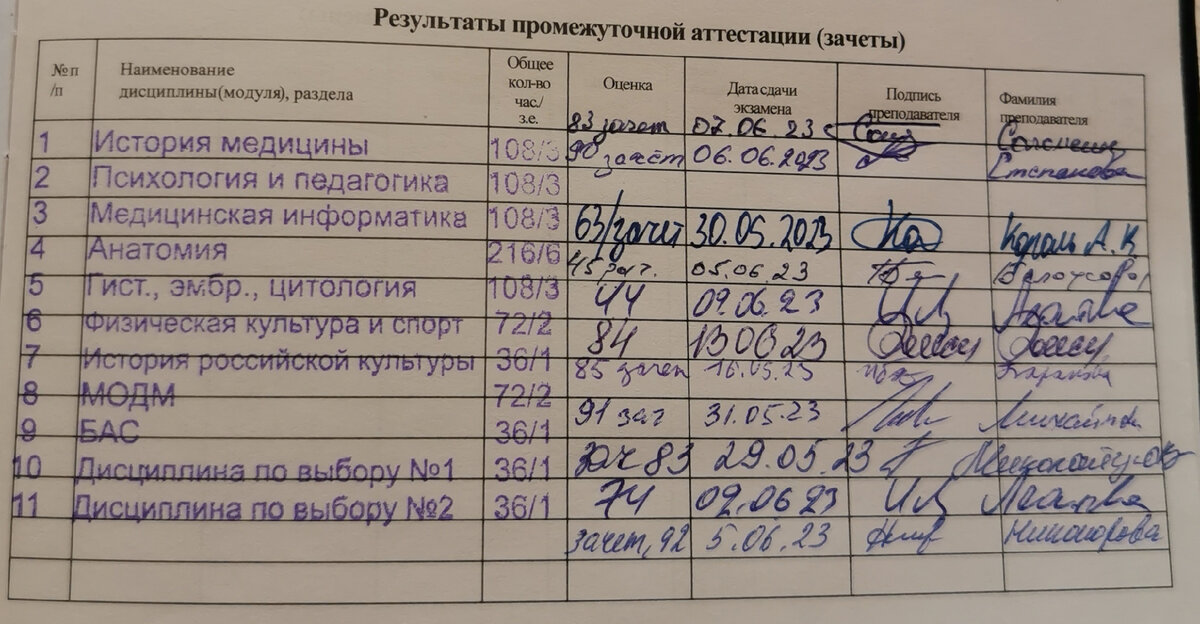 Результаты промежуточной аттестации (зачеты)
№ п/п Наименование дисциплины(модуля), раздела Общее кол-во час./ з.е. Оценка Дата сдачи экзамена Подпись преподавателя Фамилия преподавателя
83 зачет 07.06.23
1 История медицины 108/3 90 зачёт 06.06.2023 Степанова
2 Психология и педагогика 108/3
3 Медицинская информатика 108/3 63/зачет 30.05.2023 Король А.К
4 Анатомия 216/6 45 зат. 05.06 23
5 Гист., эмбр., цитология 108/3 44 09.06.23
6 Физическая культура и спорт 72/2 84 13 06 23
7 История российской культуры 36/1 85 зачет 16.05.23
8 МОДМ 72/2 91 зат 31.05.23
9 БАС 36/1
10 Дисциплина по выбору №1 36/1 зач 83 29.05.23
11 Дисциплина по выбору №2 36/1 74 02.06 23
зачет, 92 5.06.23 Никонорова